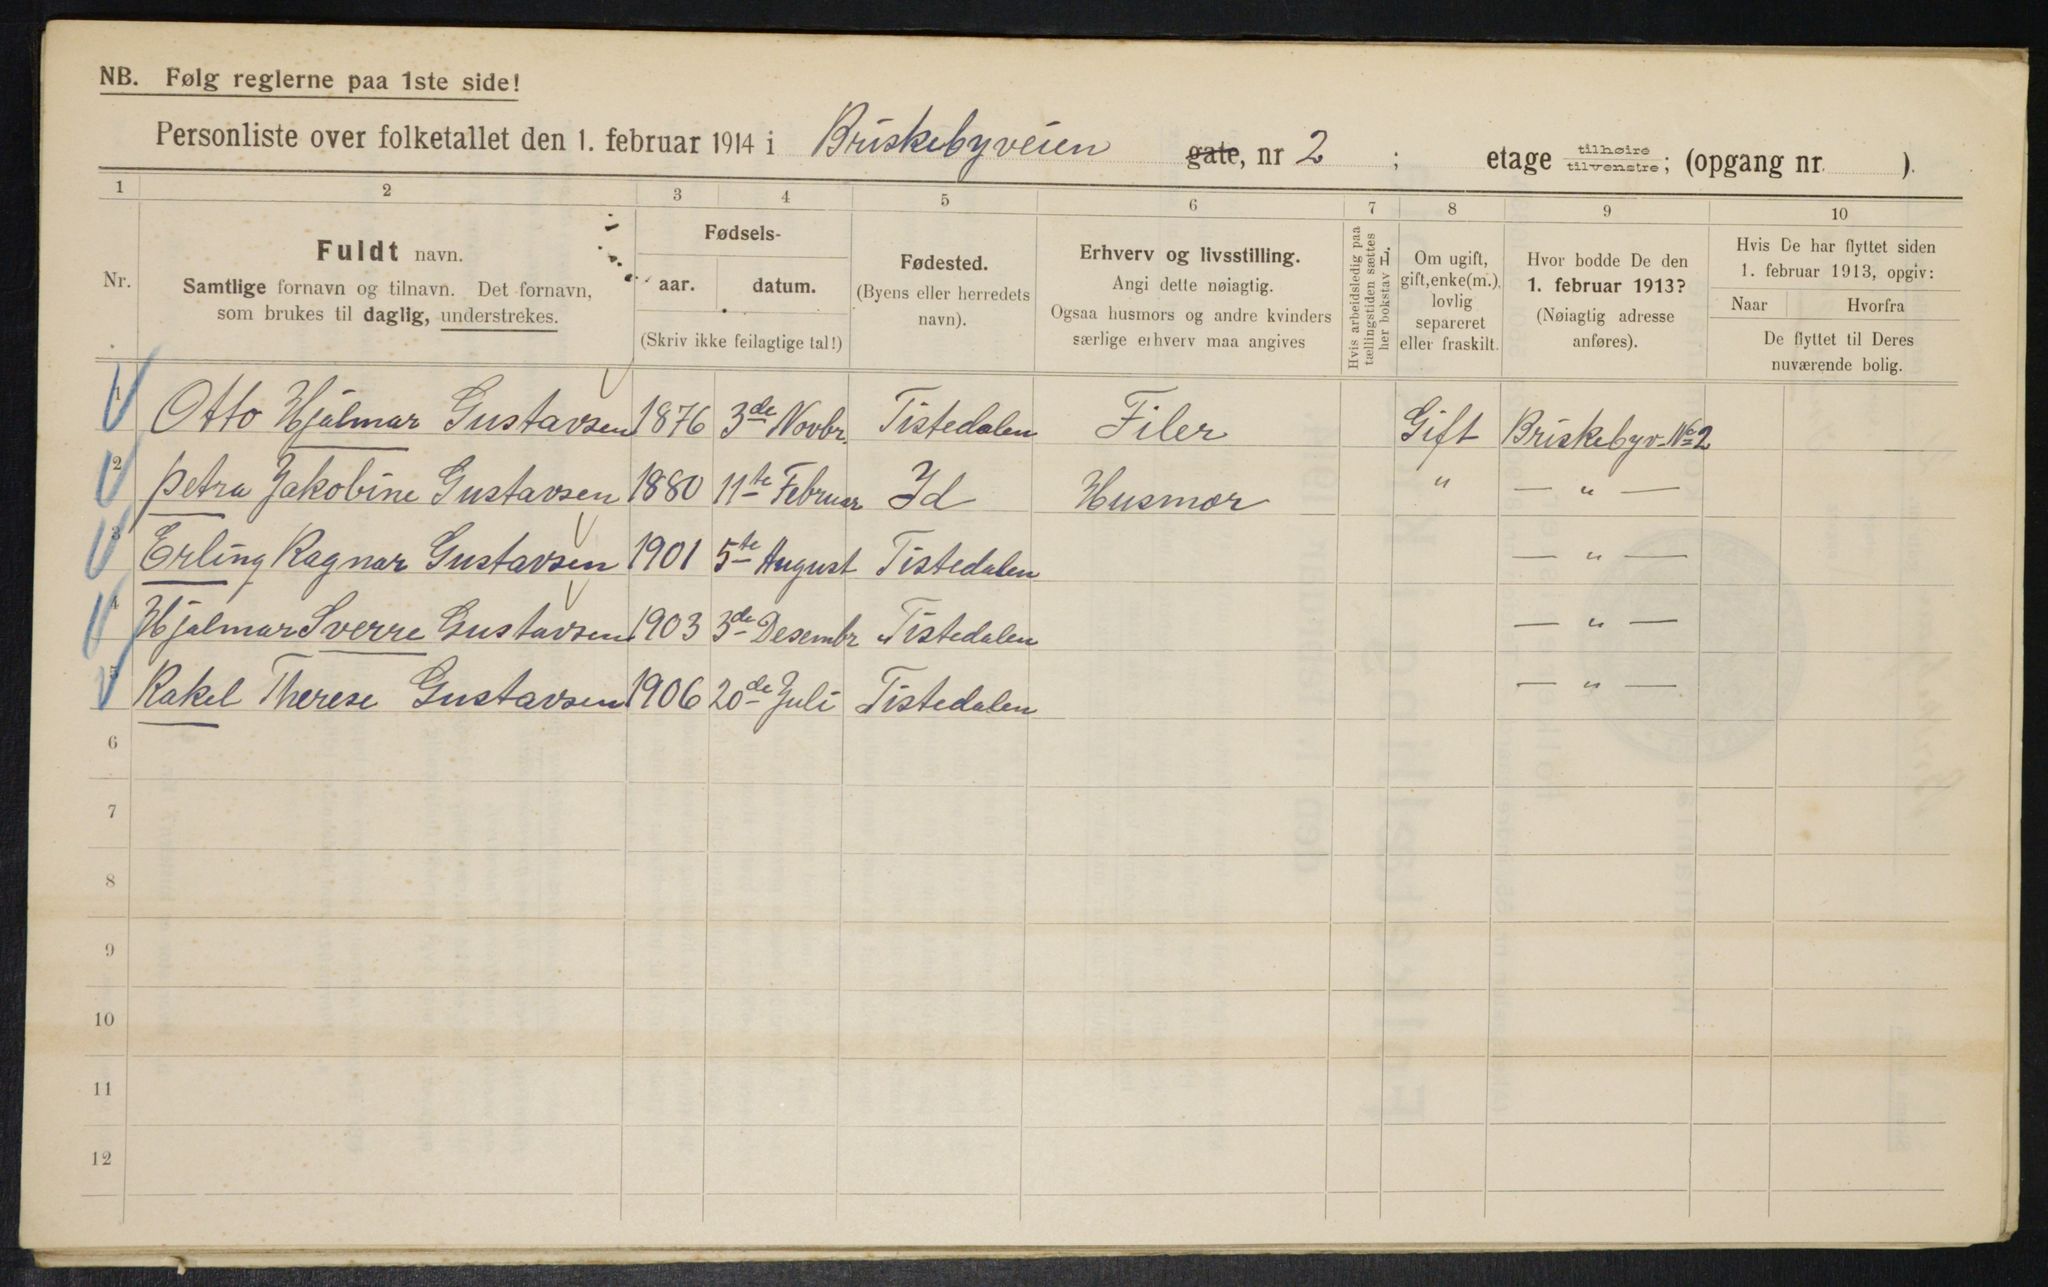 NB. Følg reglerne paa 1ste side!
Personliste over folketallet den 1. februar 1914 i Briskebyveien gate, nr 2 ; etage tilhøire tilvenstre; (opgang nr. ).
1 2 3 4 5 6 7 8 9 10
Nr.
Fuldt navn.
Samtlige fornavn og tilnavn. Det fornavn,
som brukes til daglig, understrekes.
Fødsels-
aar. datum.
(Skriv ikke feilagtige tal!)
Fødested.
(Byens eller herredets
navn).
Erhverv og livsstilling.
Angi dette nøiagtig.
Ogsaa husmors og andre kvinders
særlige erhverv maa angives
Hvis arbeidsledig paa
tællingstiden sættes
her bokstav L.
Om ugift,
gift, enke(m.),
lovlig
separeret
eller fraskilt.
Hvor bodde De den
1. februar 1913?
(Nøiagtig adresse
anføres).
Hvis De har flyttet siden
1. februar 1913, opgiv:
Naar Hvorfra
De flyttet til Deres
nuværende bolig.
1 Otto Hjalmar Gustavsen 1876 3de Novbr. Tistedalen Filer Gift Briskebyv. No 2
2 Petra Jakobine Gustavsen 1880 11te Februar Id Husmor " — " —
3 Erling Ragnar Gustavsen 1901 5te August Tistedalen — " —
4 Hjalmar Sverre Gustavsen 1903 3de Desembr Tistedalen — " —
5 Rakel Therese Gustavsen 1906 20de Juli Tistedalen — " —
6
7
8
9
10
11
12